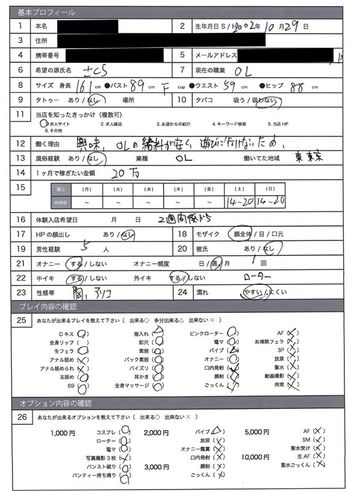 基本プロフィール
1 本名 2 生年月日 S/H 2002年10月29日
3 住所
4 携帯番号 5 メールアドレス
6 希望の源氏名 7 現在の職業 OL
8 サイズ 身長 161cm ●バスト 89cm F cup ●ウエスト 59cm ●ヒップ 88cm
9 タトゥー あり/なし 場所 10 タバコ 吸う/吸わない
11 当店を知ったきっかけ(複数可)
1.求人サイト 2.求人雑誌 3.友達からの紹介 4.キーワード検索 5.当店HP
6.その他
12 働く理由 興味、OLの給料が安く遊びに行けないため、
13 風俗経験 あり/なし 業種 OL 働いてた地域 東京
14 1ヶ月で稼ぎたい金額 20万
15 曜日 (月) (火) (水) (木) (金) (土) (日)
時間帯 14-20 14-20
16 体験入店希望日 月 日 2週間後から
17 HPの顔出し あり/なし 18 モザイク 顔全体/目/口元
19 男性経験 5人 20 彼氏 あり/なし
21 オナニー する/しない オナニー頻度 日/週/月 1回
22 中イキ する/しない 外イキ する/しない ローター
23 性感帯 胸、クリ 24 濡れ やすい/にくい
プレイ内容の確認
25 あなたが出来るプレイを教えて下さい( 出来る○ 多分出来る△ 出来ない× )
Dキス 指入れ ピンクローター AF
全身リップ 即尺 電マ お掃除フェラ
生フェラ 素股 バイブ 3P
アナル舐め バック素股 オナニー 聖水
アナル舐められ パイズリ 口内発射 動画撮影
玉舐め 耳かき 顔射 拘束
69 全身マッサージ ごっくん
オプション内容の確認
26 あなたが出来るオプションを教えて下さい( 出来る○ 出来ない× )
1,000円 コスプレ 2,000円 バイブ 5,000円 AF
ローター 放尿 SM
電マ オナニー鑑賞 聖水受け
写真撮影3枚 口内発射 10,000円 生AF
パンスト破り 3,000円 顔射 聖水ごっくん
パンティー持ち帰り ごっくん